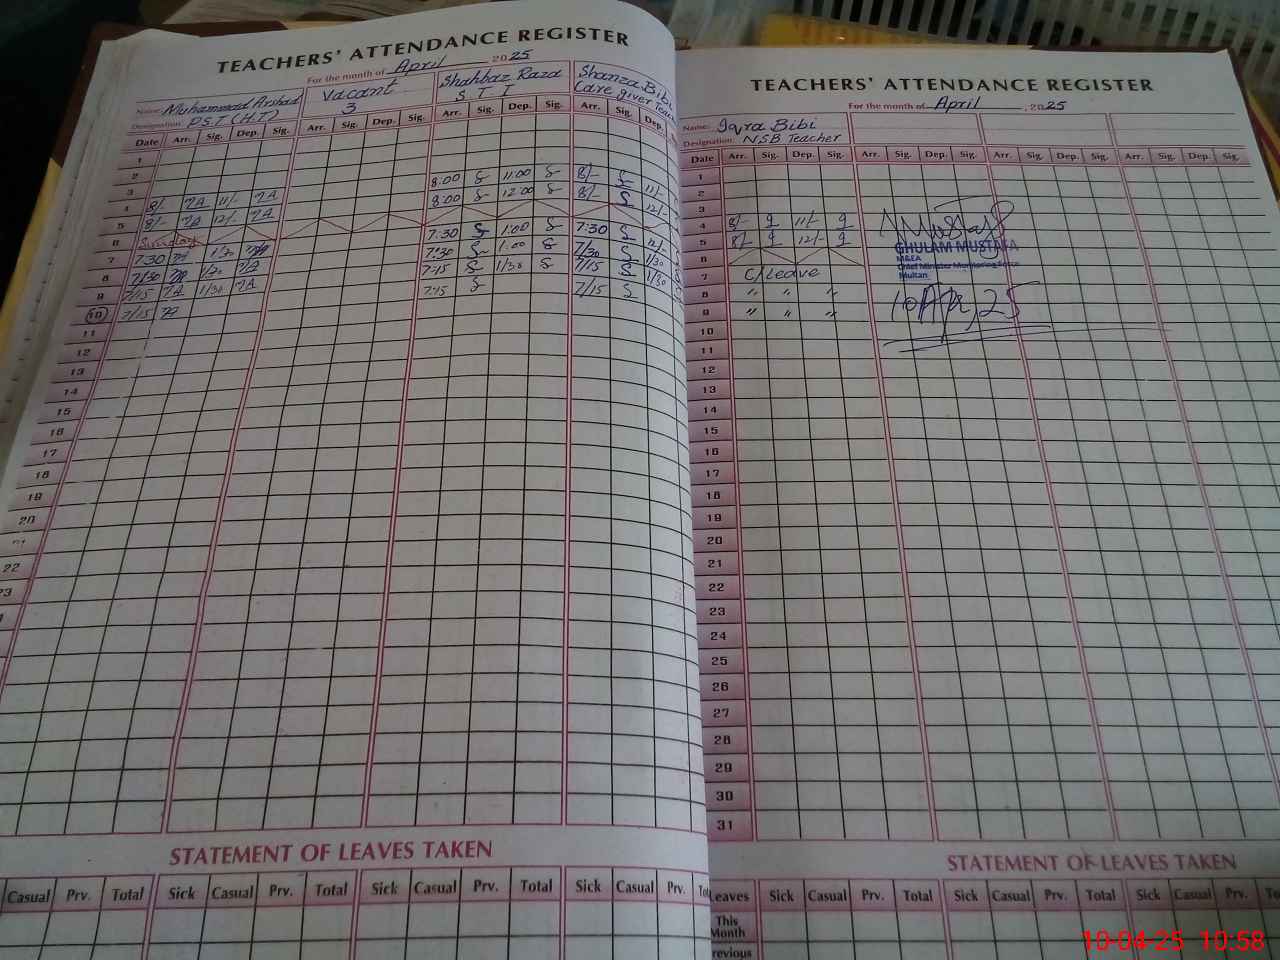 TEACHERS' ATTENDANCE REGISTER
For the month of April 2025
Name: Muhammad Arshad Vacant Shahbaz Raza Shanza Bibi
Designation: P.S.T (H.T) 3 S T I Care giver Teach
Date Arr. Sig. Dep. Sig. Arr. Sig. Dep. Sig. Arr. Sig. Dep. Sig. Arr. Sig. Dep.
1
2
3 8:00 S 11:00 S 8/- S 11/-
4 8/- 11/- 8:00 S 12:00 S 8/- S 12/-
5 8/- 12/-
6 Sunday 7:30 S 1:00 S 7:30 S 12/-
7 7:30 1/30 7:30 S 1:00 S 7/30 S 1/30
8 7/30 1/30 7:15 S 1/30 S 7/15 S 1/30
9 7/15 1/30 7:15 S 7/15 S
10 7/15
11
12
13
14
15
16
17
18
19
20
22
23
STATEMENT OF LEAVES TAKEN
Casual Prv. Total Sick Casual Prv. Total Sick Casual Prv. Total Sick Casual Prv.
TEACHERS' ATTENDANCE REGISTER
For the month of April, 2025
Name: Iqra Bibi
Designation: NSB Teacher
Date Arr. Sig. Dep. Sig. Arr. Sig. Dep. Sig. Arr. Sig. Dep. Sig. Arr. Sig. Dep. Sig.
1
2
3
4 8/- 11/-
5 8/- 12/-
6
7 C/Leave
8 " " "
9 " " "
GHULAM MUSTAFA
M&EA
Chief Minister Monitoring Force
Multan
10 Apr, 25
10
11
12
13
14
15
16
17
18
19
20
21
22
23
24
25
26
27
28
29
30
31
STATEMENT OF LEAVES TAKEN
Leaves Sick Casual Prv. Total Sick Casual Prv. Total Sick Casual Prv.
This
Month
10-04-25 10:58